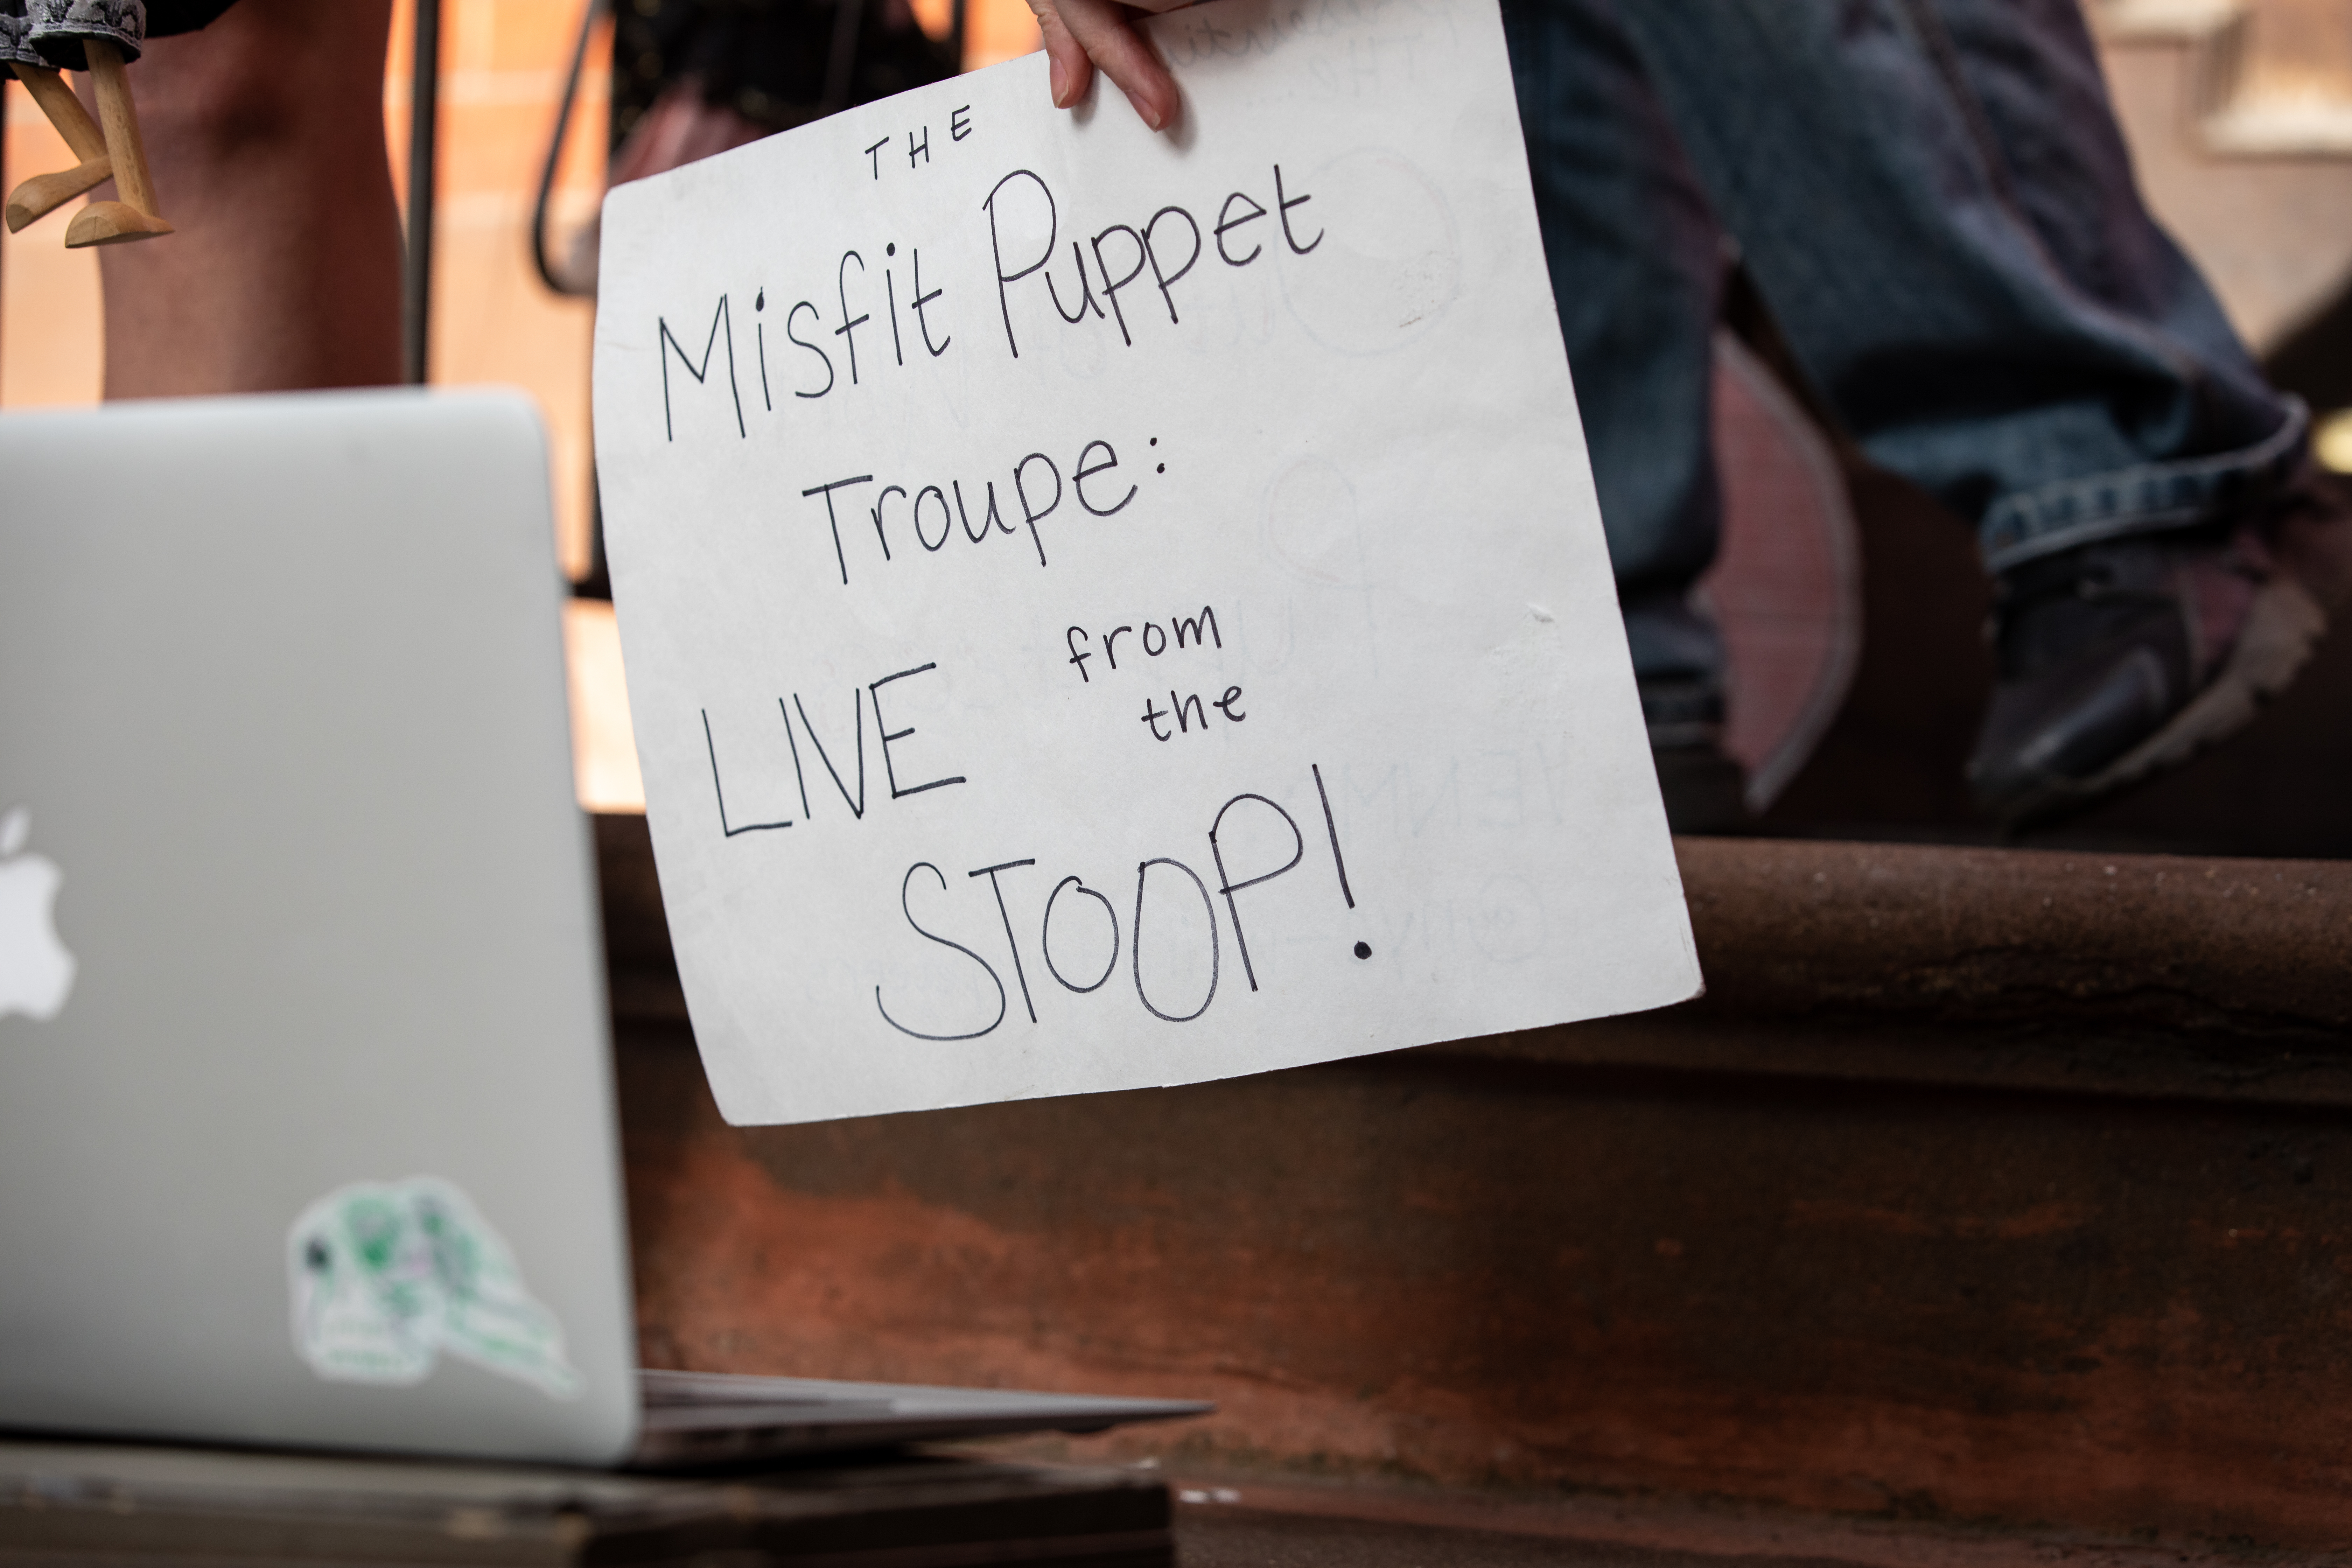 THE
Misfit Puppet
Troupe:
LIVE from
the
STOOP!